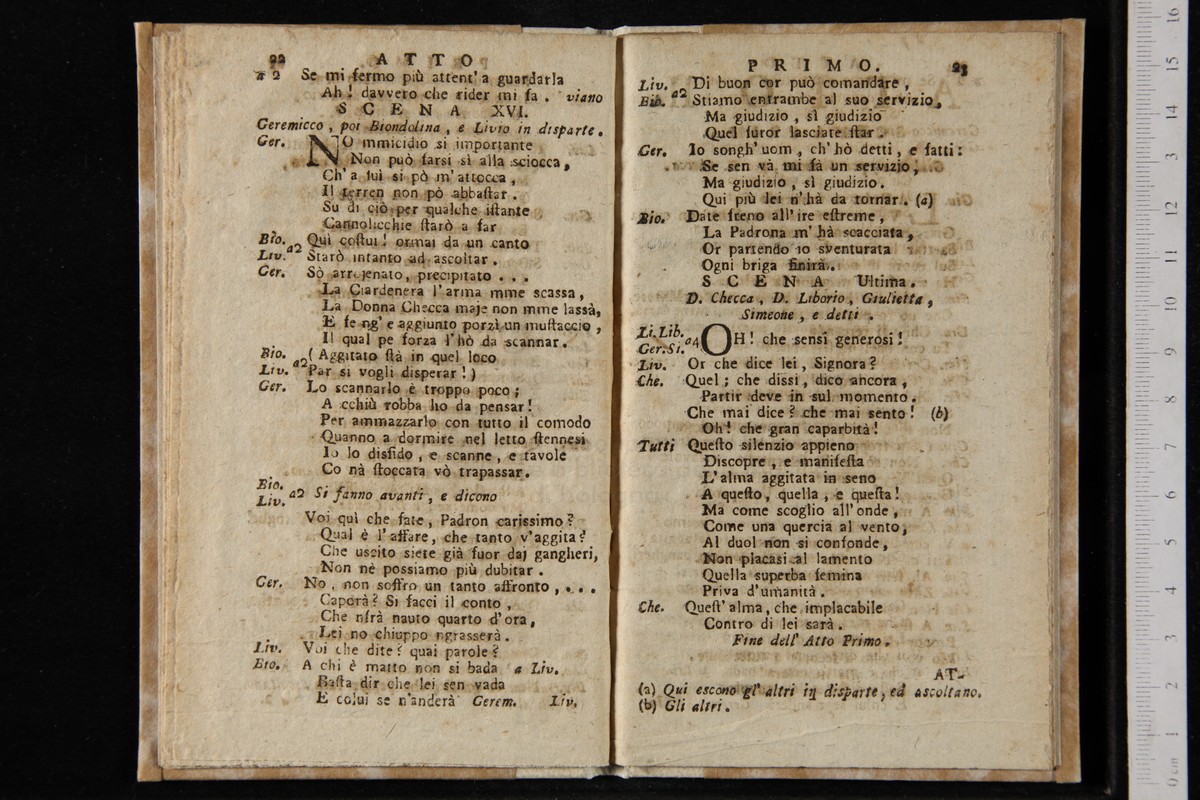 22 ATTO
a 2 Se mi fermo più attent' a guardarla
Ah! davvero che rider mi fa. viano
SCENA XVI.
Geremicco, poi Biondolina, e Livio in disparte.
Ger. NO mmicidio si importante
Non può farsi sì alla sciocca,
Ch' a lui si pò m' attocca,
Il terren non pò abbaſtar.
Su di ciò per qualche iſtante
Cannolicchie ſtarò a far
Bio. a2 Quì coſtui! ormai da un canto
Liv. Starò intanto ad ascoltar.
Ger. Sò arrojenato, precipitato...
La Ciardenera l'arma mme scassa,
La Donna Checca maje non mme lassà,
E fe ng' e aggiunto porzì un muſtaccio,
Il qual pe forza l'hò da scannar.
Bio. a2 (Aggitato ſtà in quel loco
Liv. Par si vogli disperar!)
Ger. Lo scannarlo è troppo poco;
A cchiù robba ho da pensar!
Per ammazzarlo con tutto il comodo
Quanno a dormire nel letto ſtennesi
Io lo disfido, e scanne, e tavole
Co nà ſtoccata vò trapassar.
Bio.
Liv. a2 Si fanno avanti, e dicono
Voi quì che fate, Padron carissimo?
Qual è l'affare, che tanto v'aggita?
Che uscito siete già fuor daj gangheri,
Non nè possiamo più dubitar.
Ger. No, non soffro un tanto affronto,...
Caperà? Si facci il conto,
Che nfrà nauto quarto d'ora,
Lei no chiuppo ngrasserà.
Liv. Voi che dite? quai parole?
Bio. A chi è matto non si bada a Liv.
Baſta dir che lei sen vada
E colui se n'anderà Gerem. Liv.
PRIMO. 23
Liv. a2 Di buon cor può comandare,
Bib. Stiamo entrambe al suo servizio,
Ma giudizio, sì giudizio
Quel furor lasciate ſtar.
Ger. Io songh' uom, ch' hò detti, e fatti:
Se sen và mi fà un servizio,
Ma giudizio, sì giudizio.
Qui più lei n'hà da tornar. (a)
Bio. Date freno all' ire eſtreme,
La Padrona m' hà scacciata,
Or partendo io sventurata
Ogni briga finirà.
SCENA Ultima.
D. Checca, D. Liborio, Giulietta,
Simeone, e detti.
Li. Lib.
Ger. Si. a4 OH! che sensi generosi!
Liv. Or che dice lei, Signora?
Che. Quel; che dissi, dico ancora,
Partir deve in sul momento.
Che mai dice? che mai sento! (b)
Oh! che gran caparbità!
Tutti Queſto silenzio appieno
Discopre, e manifeſta
L'alma aggitata in seno
A queſto, quella, e queſta!
Ma come scoglio all' onde,
Come una quercia al vento,
Al duol non si confonde,
Non placasi al lamento
Quella superba femina
Priva d'umanità.
Che. Queſt' alma, che implacabile
Contro di lei sarà.
Fine dell' Atto Primo.
AT-
(a) Qui escono gl' altri in disparte, ed ascoltano.
(b) Gli altri.